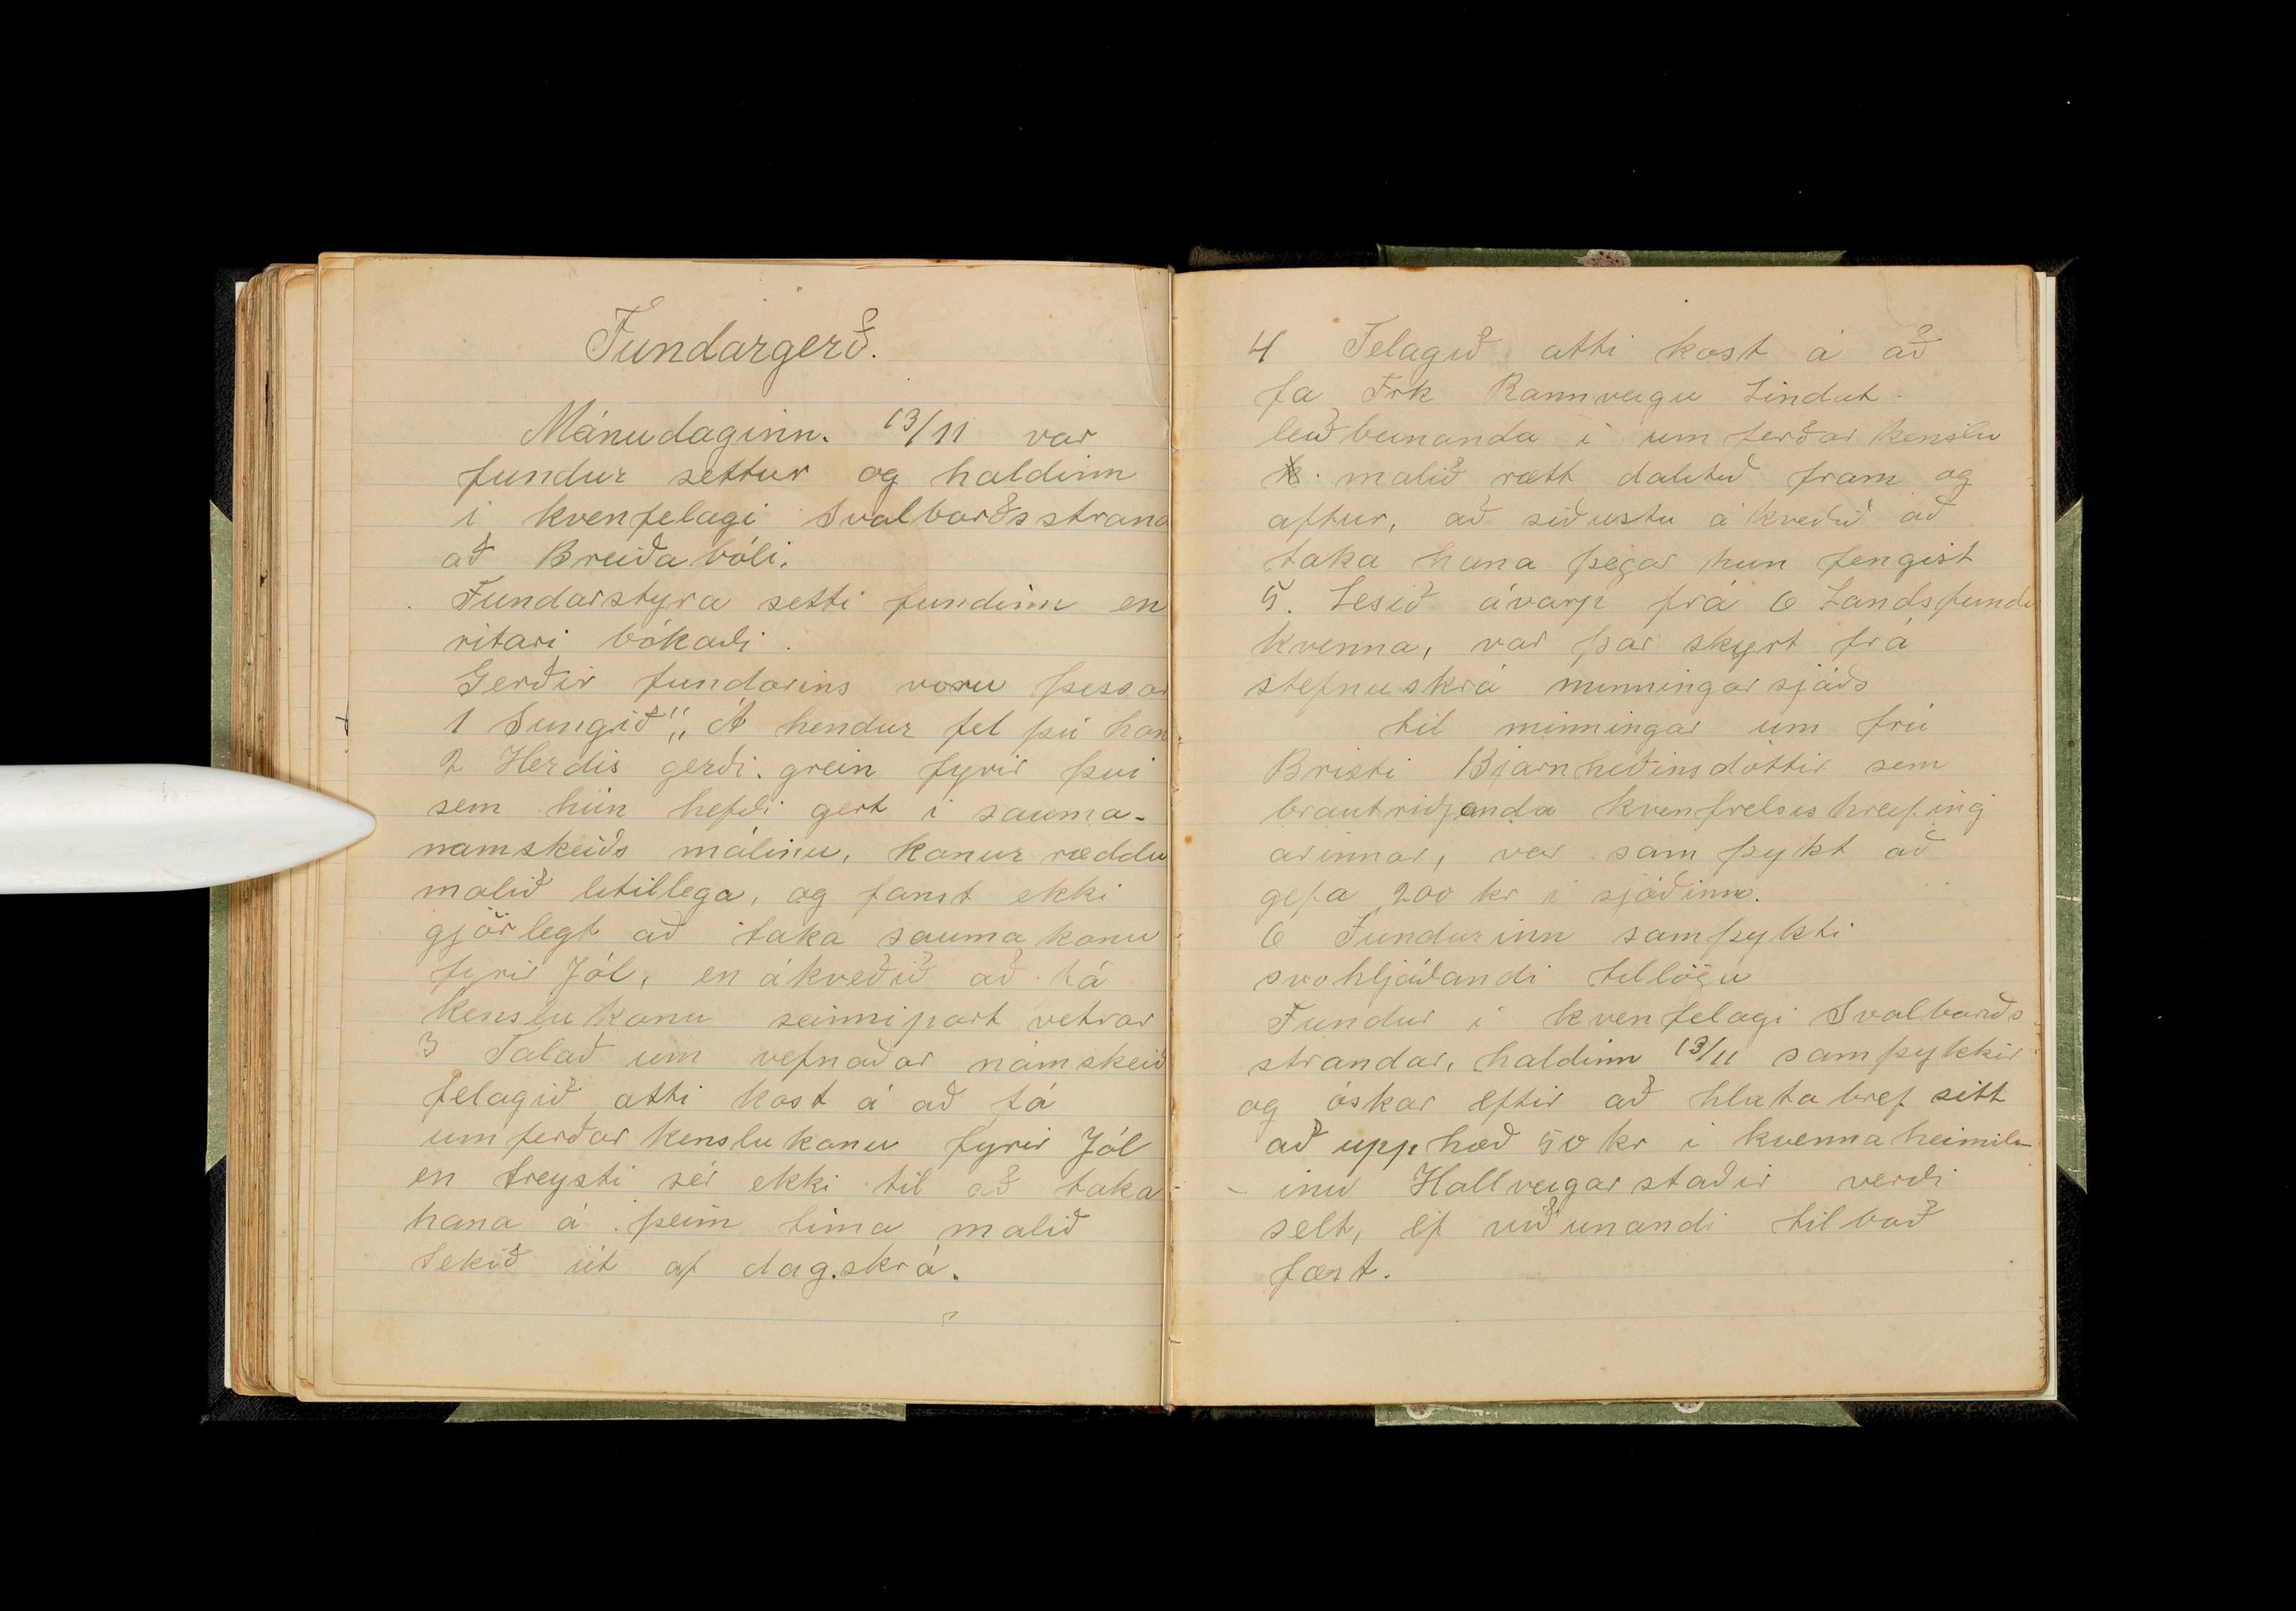 Fundargerð.
Mánudaginn. 13/11 var
fundur settur og haldinn
i kvenfelagi Svalbarðsstrand
að Breiðabóli.
Fundarstyra setti fundinn en
ritari bókaði.
Gerðir fundarins voru þessar
1 Sungið „Á hendur fel þú hon
2 Herdis gerði. grein fyrir þvi
sem hún hefði gert i sauma-
namskeiðs málinu, konur ræddu
malið litillega, og fanst ekki
gjörlegt að taka sauma konu
fyrir Jól, en ákveðið að fá
Kenslukonu seinnipart vetrar
3 Talað um vefnaðar námskeið
felagið atti kost á að fá
umferðar kenslukonu fyrir Jól
en treysti sér ekki til að taka
hana á þeim tima malið
tekið út af dag.skrá.
4 Felagið atti kost á að
fa Frk Rannveigu Lindat.
leiðbeinanda i umferðar kenslu
malið rætt dalitið fram og
aftur, að siðustu ákveðið að
taka hana þegar hun fengist
5. Lesið ávarp frá 6 Landsfundi
kvenna, var þar skyrt frá
stefnuskrá minningarsjóðs
til minningar um frú
Brieti Bjarnheðinsdóttir sem
brautriðjanda kvenfrelsishreifing
arinnar, var samþykt að
gefa 200 kr i sjóðinn.
6 Fundurinn samþykti
svohljóðandi tillögu
Fundur i kvenfelagi Svalbarðs
strandar, haldinn 13/11 samþykkir
og óskar eftir að hlutabref sitt
að upphæð 50 kr i kvennaheimil-
- inu Hallveigarstaðir verði
selt, ef viðunandi tilboð
fæst.